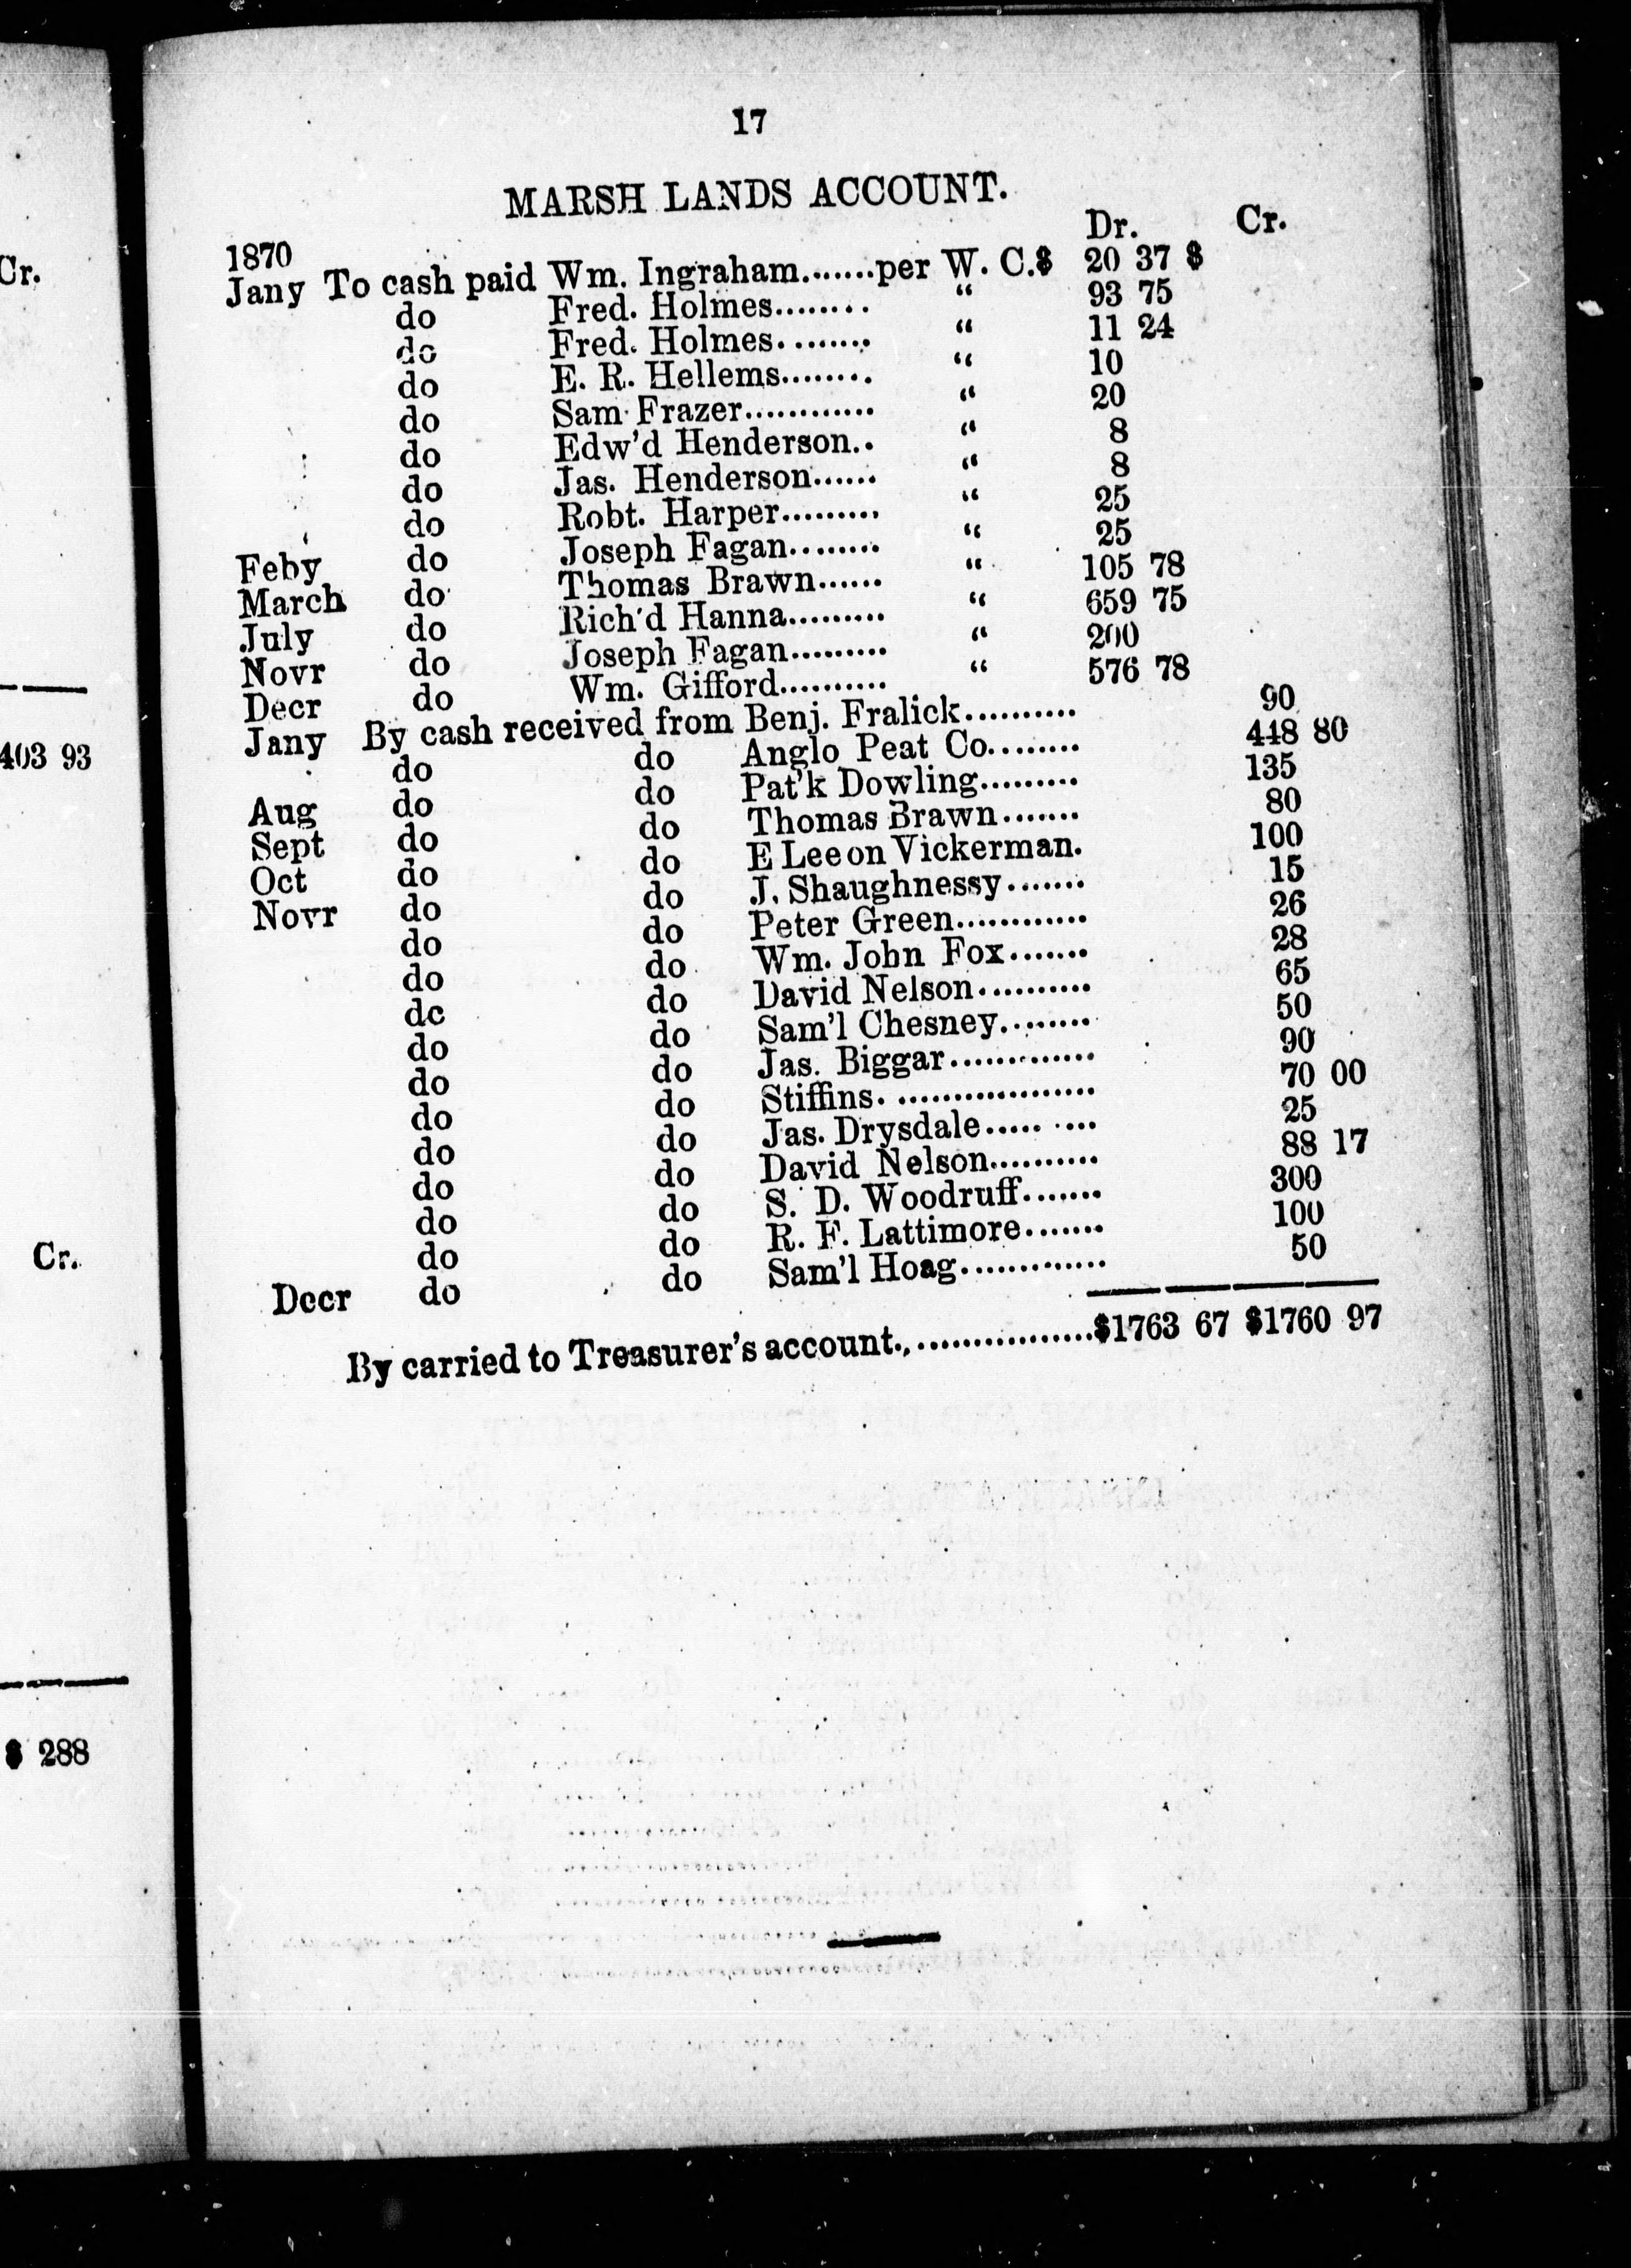 Cr.
403 93
Cr.
$ 288
17
MARSH LANDS ACCOUNT.
Dr. Cr.
1870
Jany To cash paid Wm. Ingraham.......per W. C.$ 20 37 $
do Fred. Holmes........ “ 93 75
do Fred. Holmes......... “ 11 24
do E. R. Hellems........ “ 10
do Sam Frazer............ “ 20
do Edw'd Henderson.. “ 8
do Jas. Henderson...... “ 8
do Robt. Harper......... “ 25
Feby do Joseph Fagan........ “ 25
March do Thomas Brawn...... “ 105 78
July do Rich'd Hanna......... “ 659 75
Novr do Joseph Fagan......... “ 200
Decr do Wm. Gifford.......... “ 576 78
Jany By cash received from Benj. Fralick.......... 90
do do Anglo Peat Co........ 448 80
Aug do do Pat'k Dowling......... 135
Sept do do Thomas Brawn....... 80
Oct do do E Lee on Vickerman. 100
Novr do do J. Shaughnessy....... 15
do do Peter Green............ 26
do do Wm. John Fox....... 28
dc do David Nelson.......... 65
do do Sam'l Chesney........ 50
do do Jas. Biggar............. 90
do do Stiffins. .................. 70 00
do do Jas. Drysdale..... .... 25
do do David Nelson.......... 88 17
do do S. D. Woodruff....... 300
do do R. F. Lattimore....... 100
Decr do do Sam'l Hoag............. 50
By carried to Treasurer's account.,.................$1763 67 $1760 97